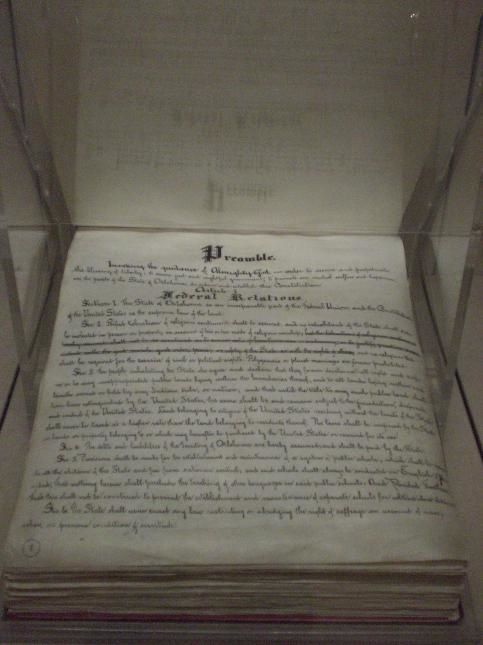 Preamble.
Invoking the guidance of Almighty God, in order to secure and perpetuate
the blessing of liberty; to secure just and rightful government; to promote our mutual welfare and happiness,
we the people of the State of Oklahoma, do ordain and establish this Constitution.
Article I
Federal Relations
Section 1. The State of Oklahoma is an inseparable part of the Federal Union, and the Constitution
of the United States is the supreme law of the land.
Sec. 2. Perfect toleration of religious sentiment shall be secured, and no inhabitant of the State shall ever
be molested in person or property on account of his or her mode of religious worship;
shall be required for the exercise of civil or political rights. Polygamous or plural marriages are forever prohibited.
Sec. 3. The people inhabiting the State do agree and declare that they forever disclaim all right and title
in or to any unappropriated public lands lying within the boundaries thereof, and to all lands lying within said
limits owned or held by any Indian, tribe, or nation; and that until the title to any such public land shall
have been extinguished by the United States, the same shall be and remain subject to the jurisdiction,
and control of the United States. Land belonging to citizens of the United States residing without the limits of the
shall never be taxed at a higher rate than the land belonging to residents thereof. No taxes shall be imposed by the State
on lands or property belonging to or which may hereafter be purchased by the United States or reserved for its use.
Sec. 4. The debts and liabilities of the Territory of Oklahoma are hereby assumed, and shall be paid by the State.
Sec. 5. Provisions shall be made for the establishment and maintenance of a system of public schools, which shall
to all the children of the State and free from sectarian control; and said schools shall always be conducted in English:
that nothing herein shall preclude the teaching of other languages in said public schools: And Provided Further,
that this shall not be construed to prevent the establishment and maintenance of separate schools for white and colored
Sec. 6. The State shall never enact any law restricting or abridging the right of suffrage on account of race,
color, or previous condition of servitude.
1